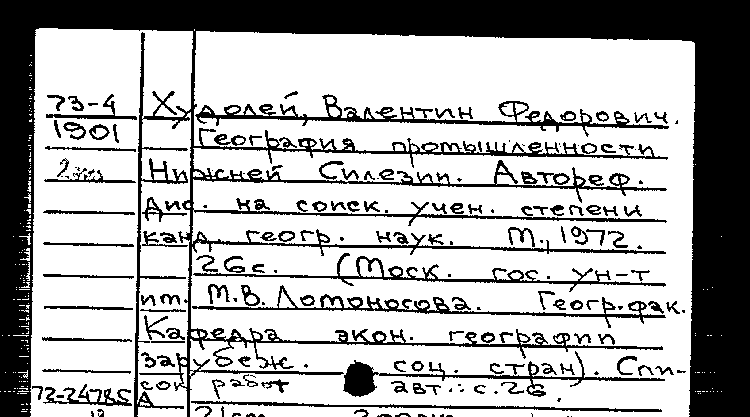 73-4 Худолей, Валентин Федорович.
1901 География промышленности
2 экз Нижней Силезии. Автореф.
дис. на соиск. учен. степени
канд. геогр. наук. М., 1972.
26с. (Моск. гос. ун-т
им. М.В. Ломоносова. Геогр. фак.
Кафедра экон. географии
зарубеж. соц. стран). Спи-
сок работ авт.: с.26.
72-24785А
21см